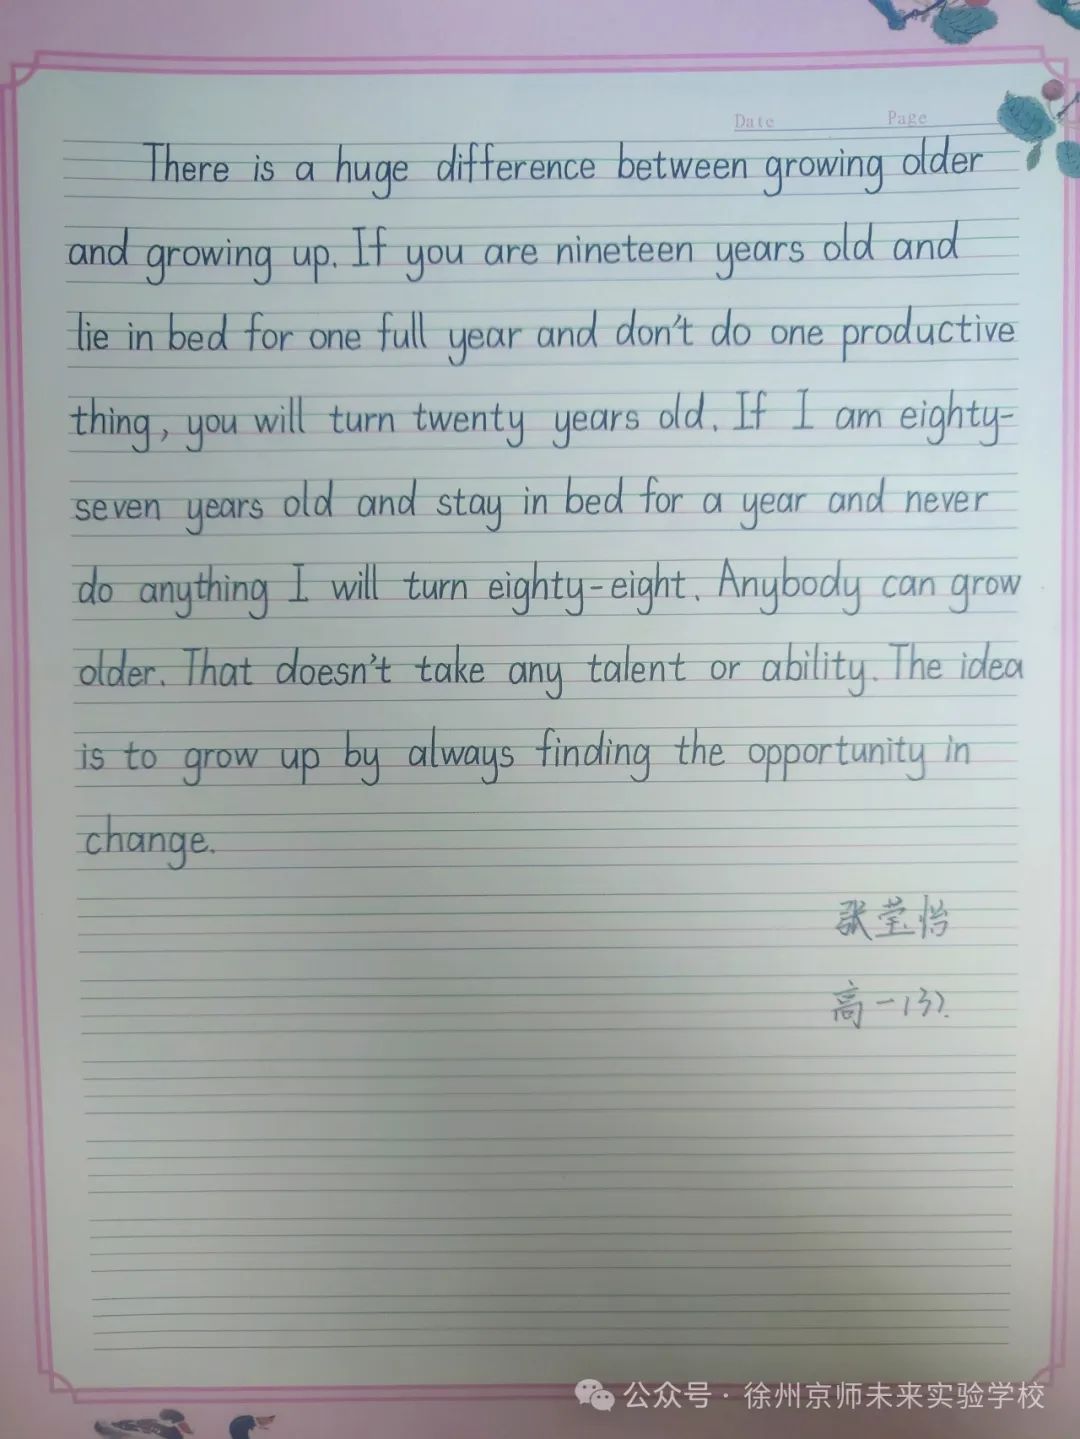 Date Page
There is a huge difference between growing older
and growing up. If you are nineteen years old and
lie in bed for one full year and don't do one productive
thing, you will turn twenty years old. If I am eighty-
seven years old and stay in bed for a year and never
do anything I will turn eighty-eight. Anybody can grow
older. That doesn't take any talent or ability. The idea
is to grow up by always finding the opportunity in
change.
张莹怡
高一(3)
公众号·徐州京师未来实验学校